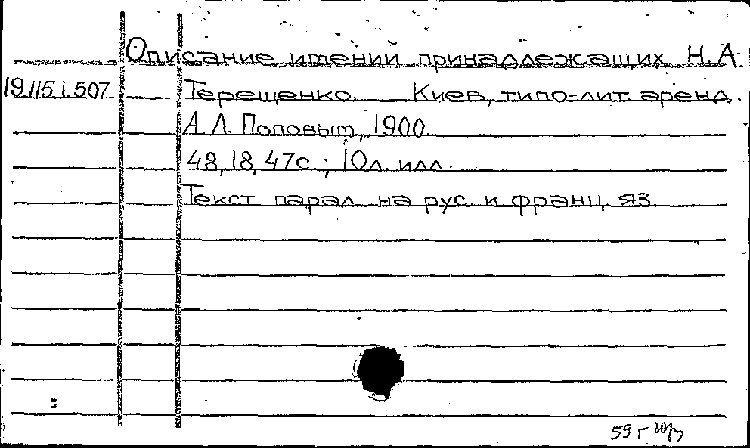 Описание имений принадлежащих Н.А.
19.115.507 Терещенко. Киев, типо-лит. аренд.
А.Л. Поповым, 1900.
48, 18, 47с.; 10л. илл.
Текст парал. на рус. и франц. яз.
59 г